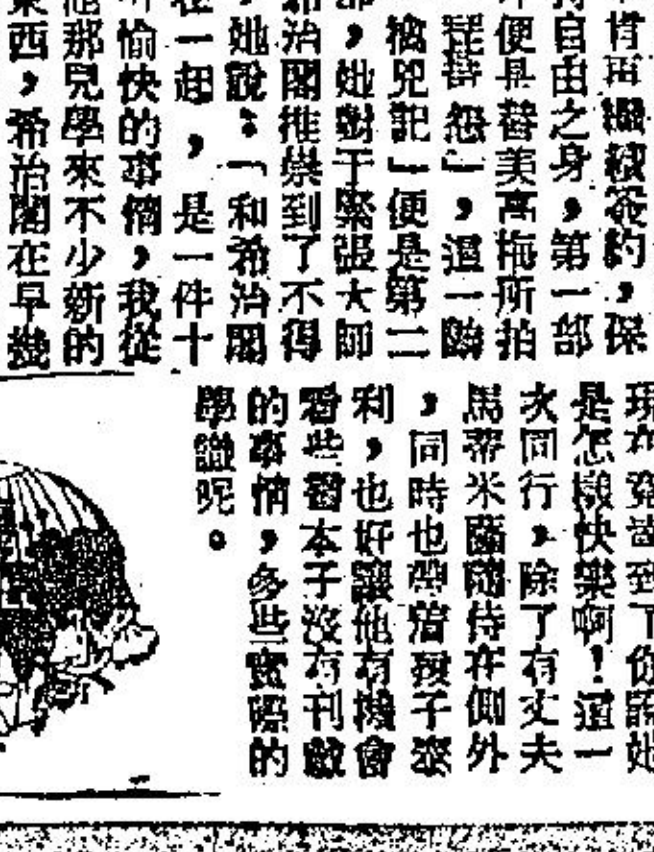 肯再繼續簽約，保
持自由之身，第一部
便是替美高梅所拍
琵琶怨」，這一齣
擒兇記」便是第二
部，她對于緊張大師
希治閣推崇到了不得
，她說：「和希治閣
在一起，是一件十
愉快的事情，我從
他那兒學來不少新的
東西，希治閣在早幾
現在
到了
她
是怎樣快樂啊！這一
次同行，除了有丈夫
馬蒂米爾隨侍在側外
，同時也帶着孩子來
利，也好讓他有機會
看些書本子沒有刊載
的事情，多些實際的
學識呢。